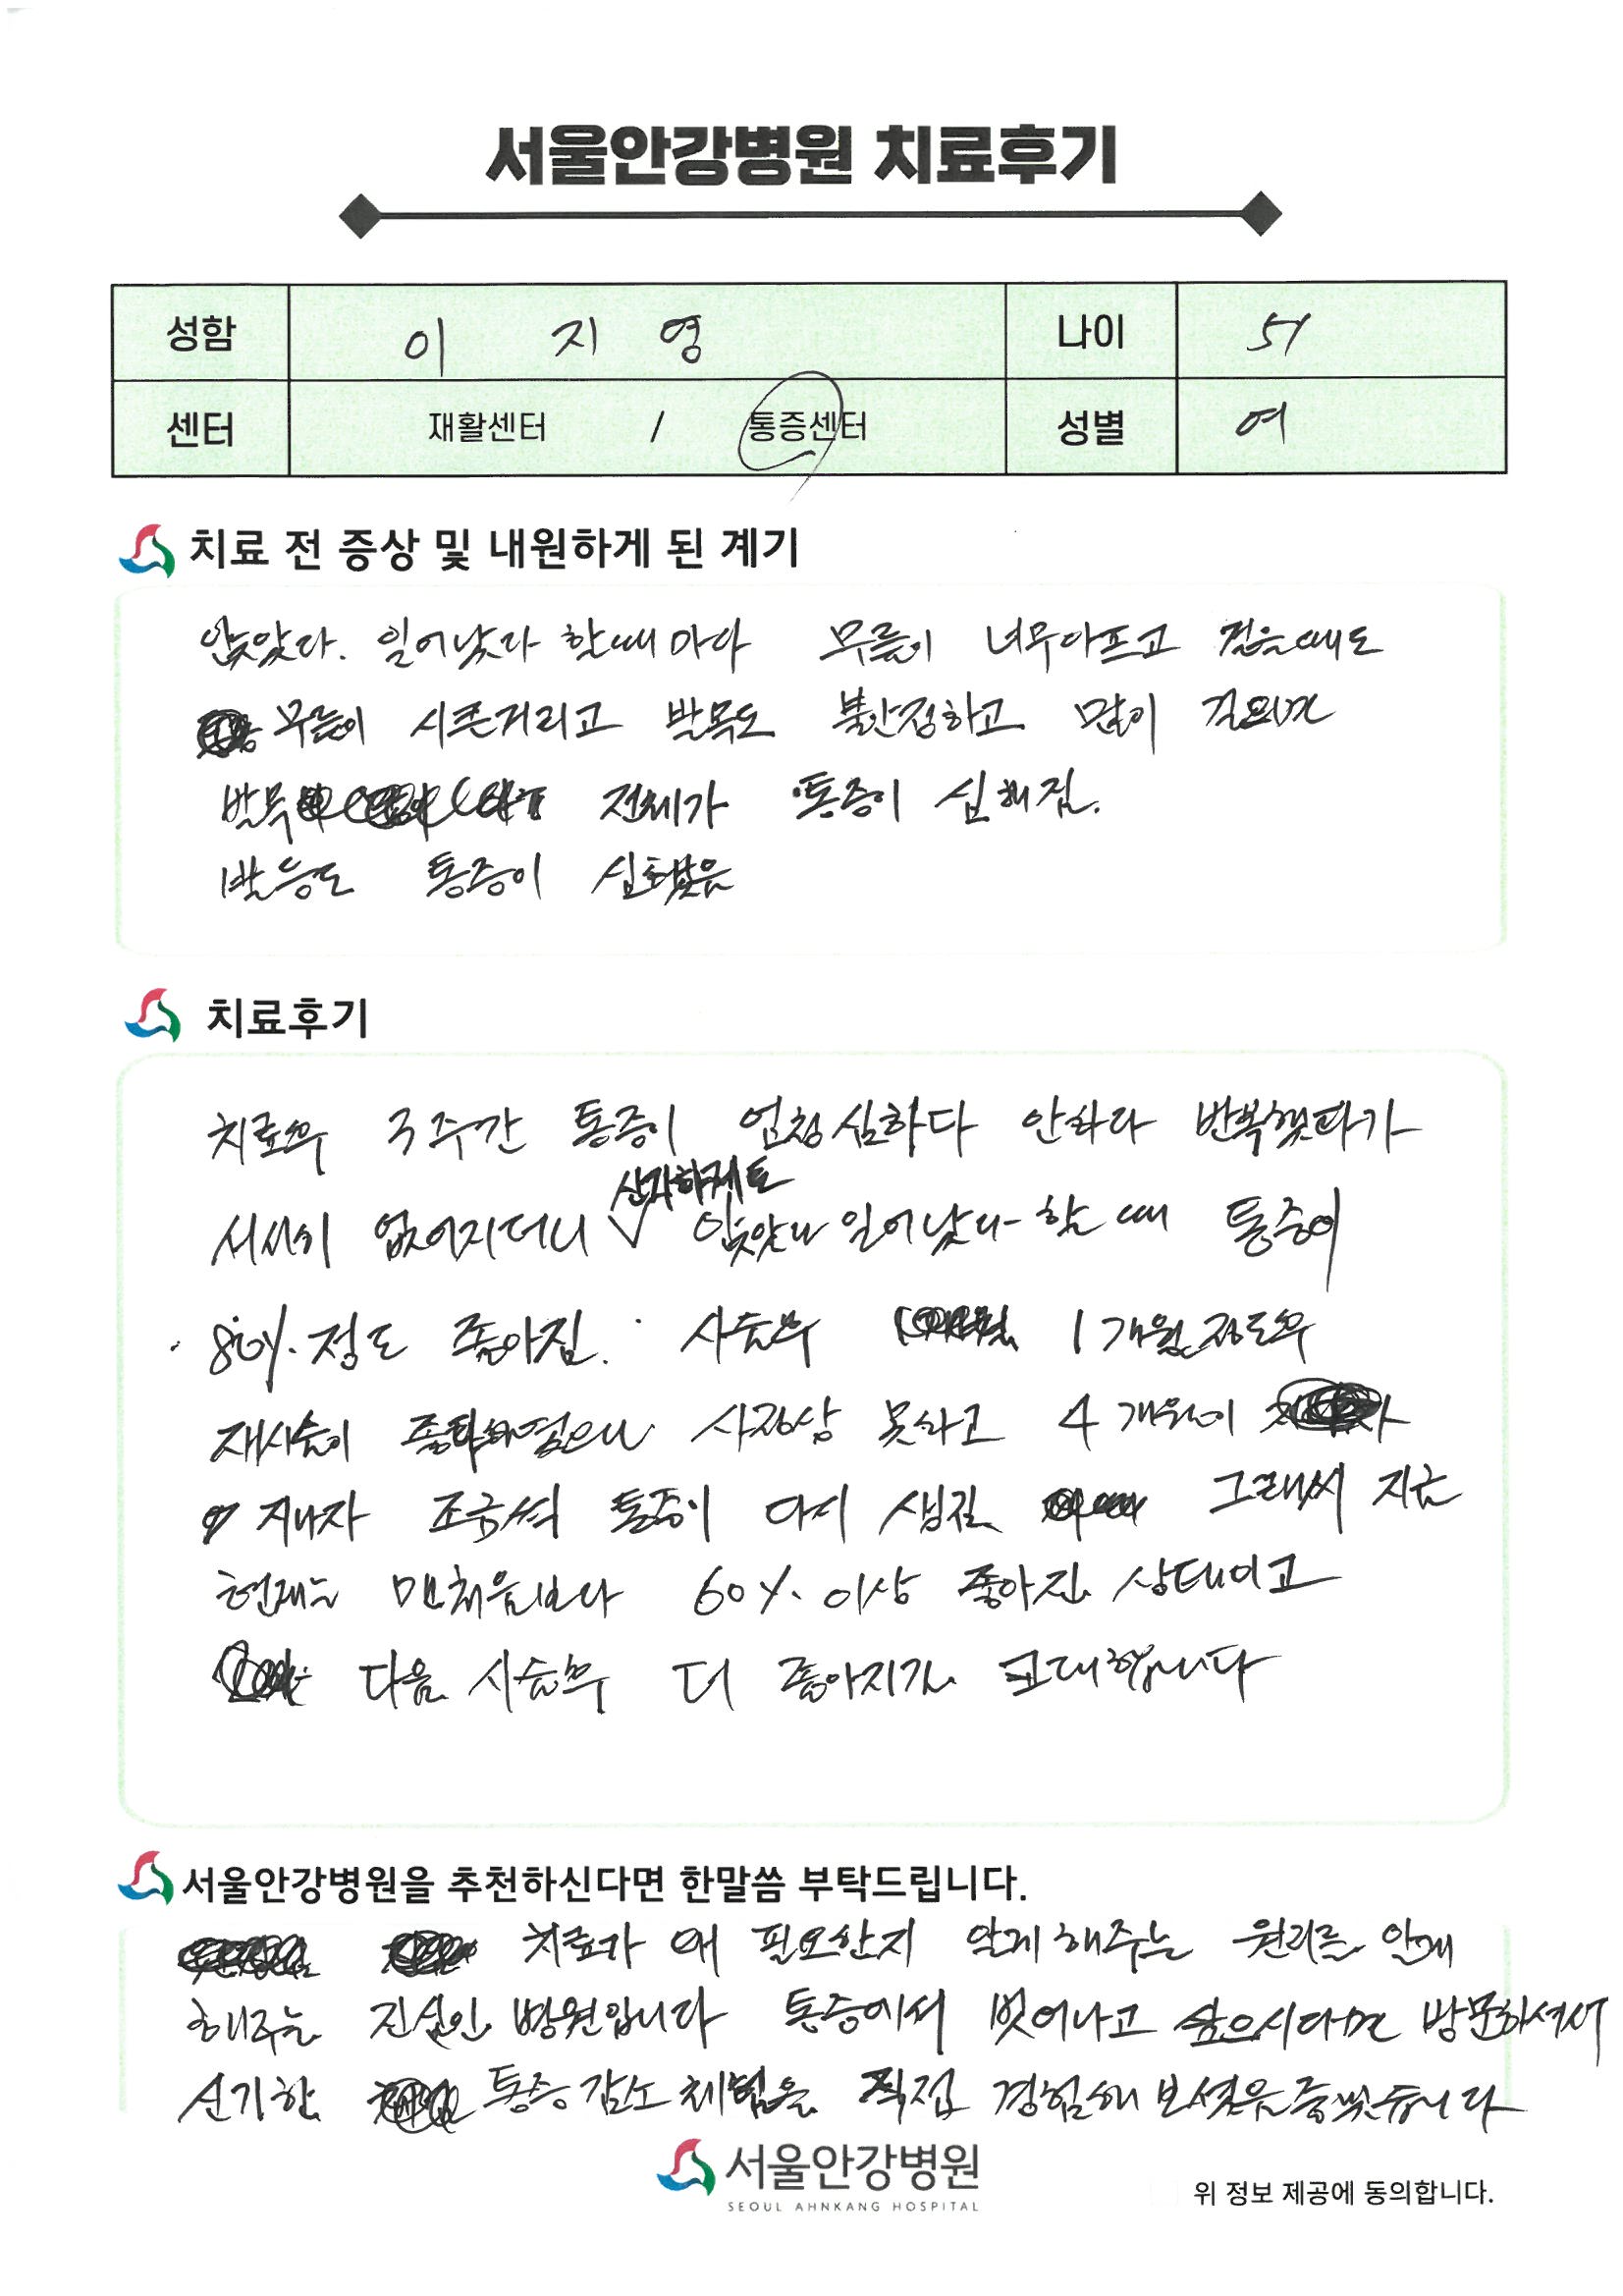 서울안강병원 치료후기
성함 이 지 영 나이 51
센터 재활센터 / 통증센터 성별 여
치료 전 증상 및 내원하게 된 계기
앉았다. 일어났다 할때마다 무릎이 너무아프고 걸을때도
무릎이 시큰거리고 발목도 불안정하고 많이 걸으면
발목 전체가 통증이 심해짐.
발등도 통증이 심했음
치료후기
치료후 3주간 통증이 엄청심하다 안하다 반복했다가
서서히 없어지더니 신기하게도 앉았다 일어났다 할 때 통증이
80%. 정도 좋아짐. 시술후 1개월 정도후
재시술이 사정상 못하고 4개월이
지나자 조금씩 통증이 다시 생김 그래서 지금
현재는 맨처음보다 60%. 이상 좋아진 상태이고
다음 시술후 더 좋아지길 기대합니다
서울안강병원을 추천하신다면 한말씀 부탁드립니다.
치료가 왜 필요한지 알게해주는 원리를 알게
해주는 진실인 병원입니다 통증에서 벗어나고 싶으시다면 방문하셔서
신기한 통증감소 체험을 직접 경험해 보셨음 좋겠습니다
서울안강병원
SEOUL AHNKANG HOSPITAL
위 정보 제공에 동의합니다.